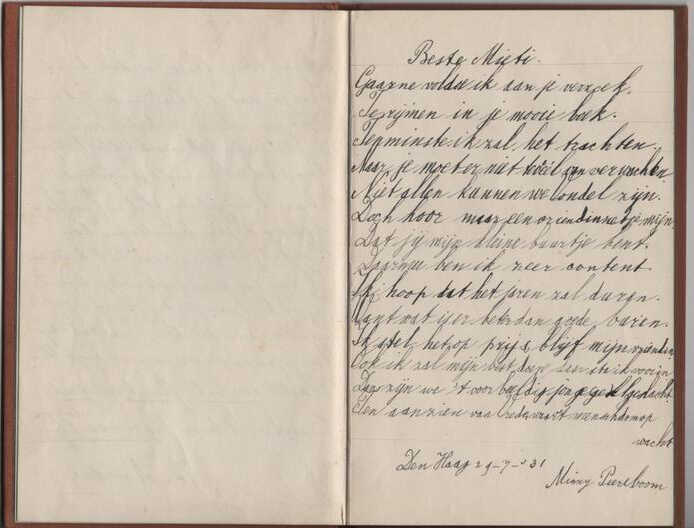 Beste Mieti.
Gaarne voldoe ik aan je verzoek.
Te rijmen in je mooie boek.
Tenminste ik zal het trachten.
Maar je moet er niet veel van verwachten.
Niet allen kunnen we Vondel zijn.
Doch hoor maar een vriendinnetje mijn.
Dat jij mijn kleine buurtje bent.
Daarmee ben ik zeer content.
Ik hoop dat het jaren zal duren.
Want wat is er beter dan goede buren.
Ik stel het op prijs, blijf mijn vriendin
Ook ik zal mijn best doen
Daar zijn we 't voor
Ten aanzien van
wacht
Den Haag 29-7-'31
Minny Peereboom